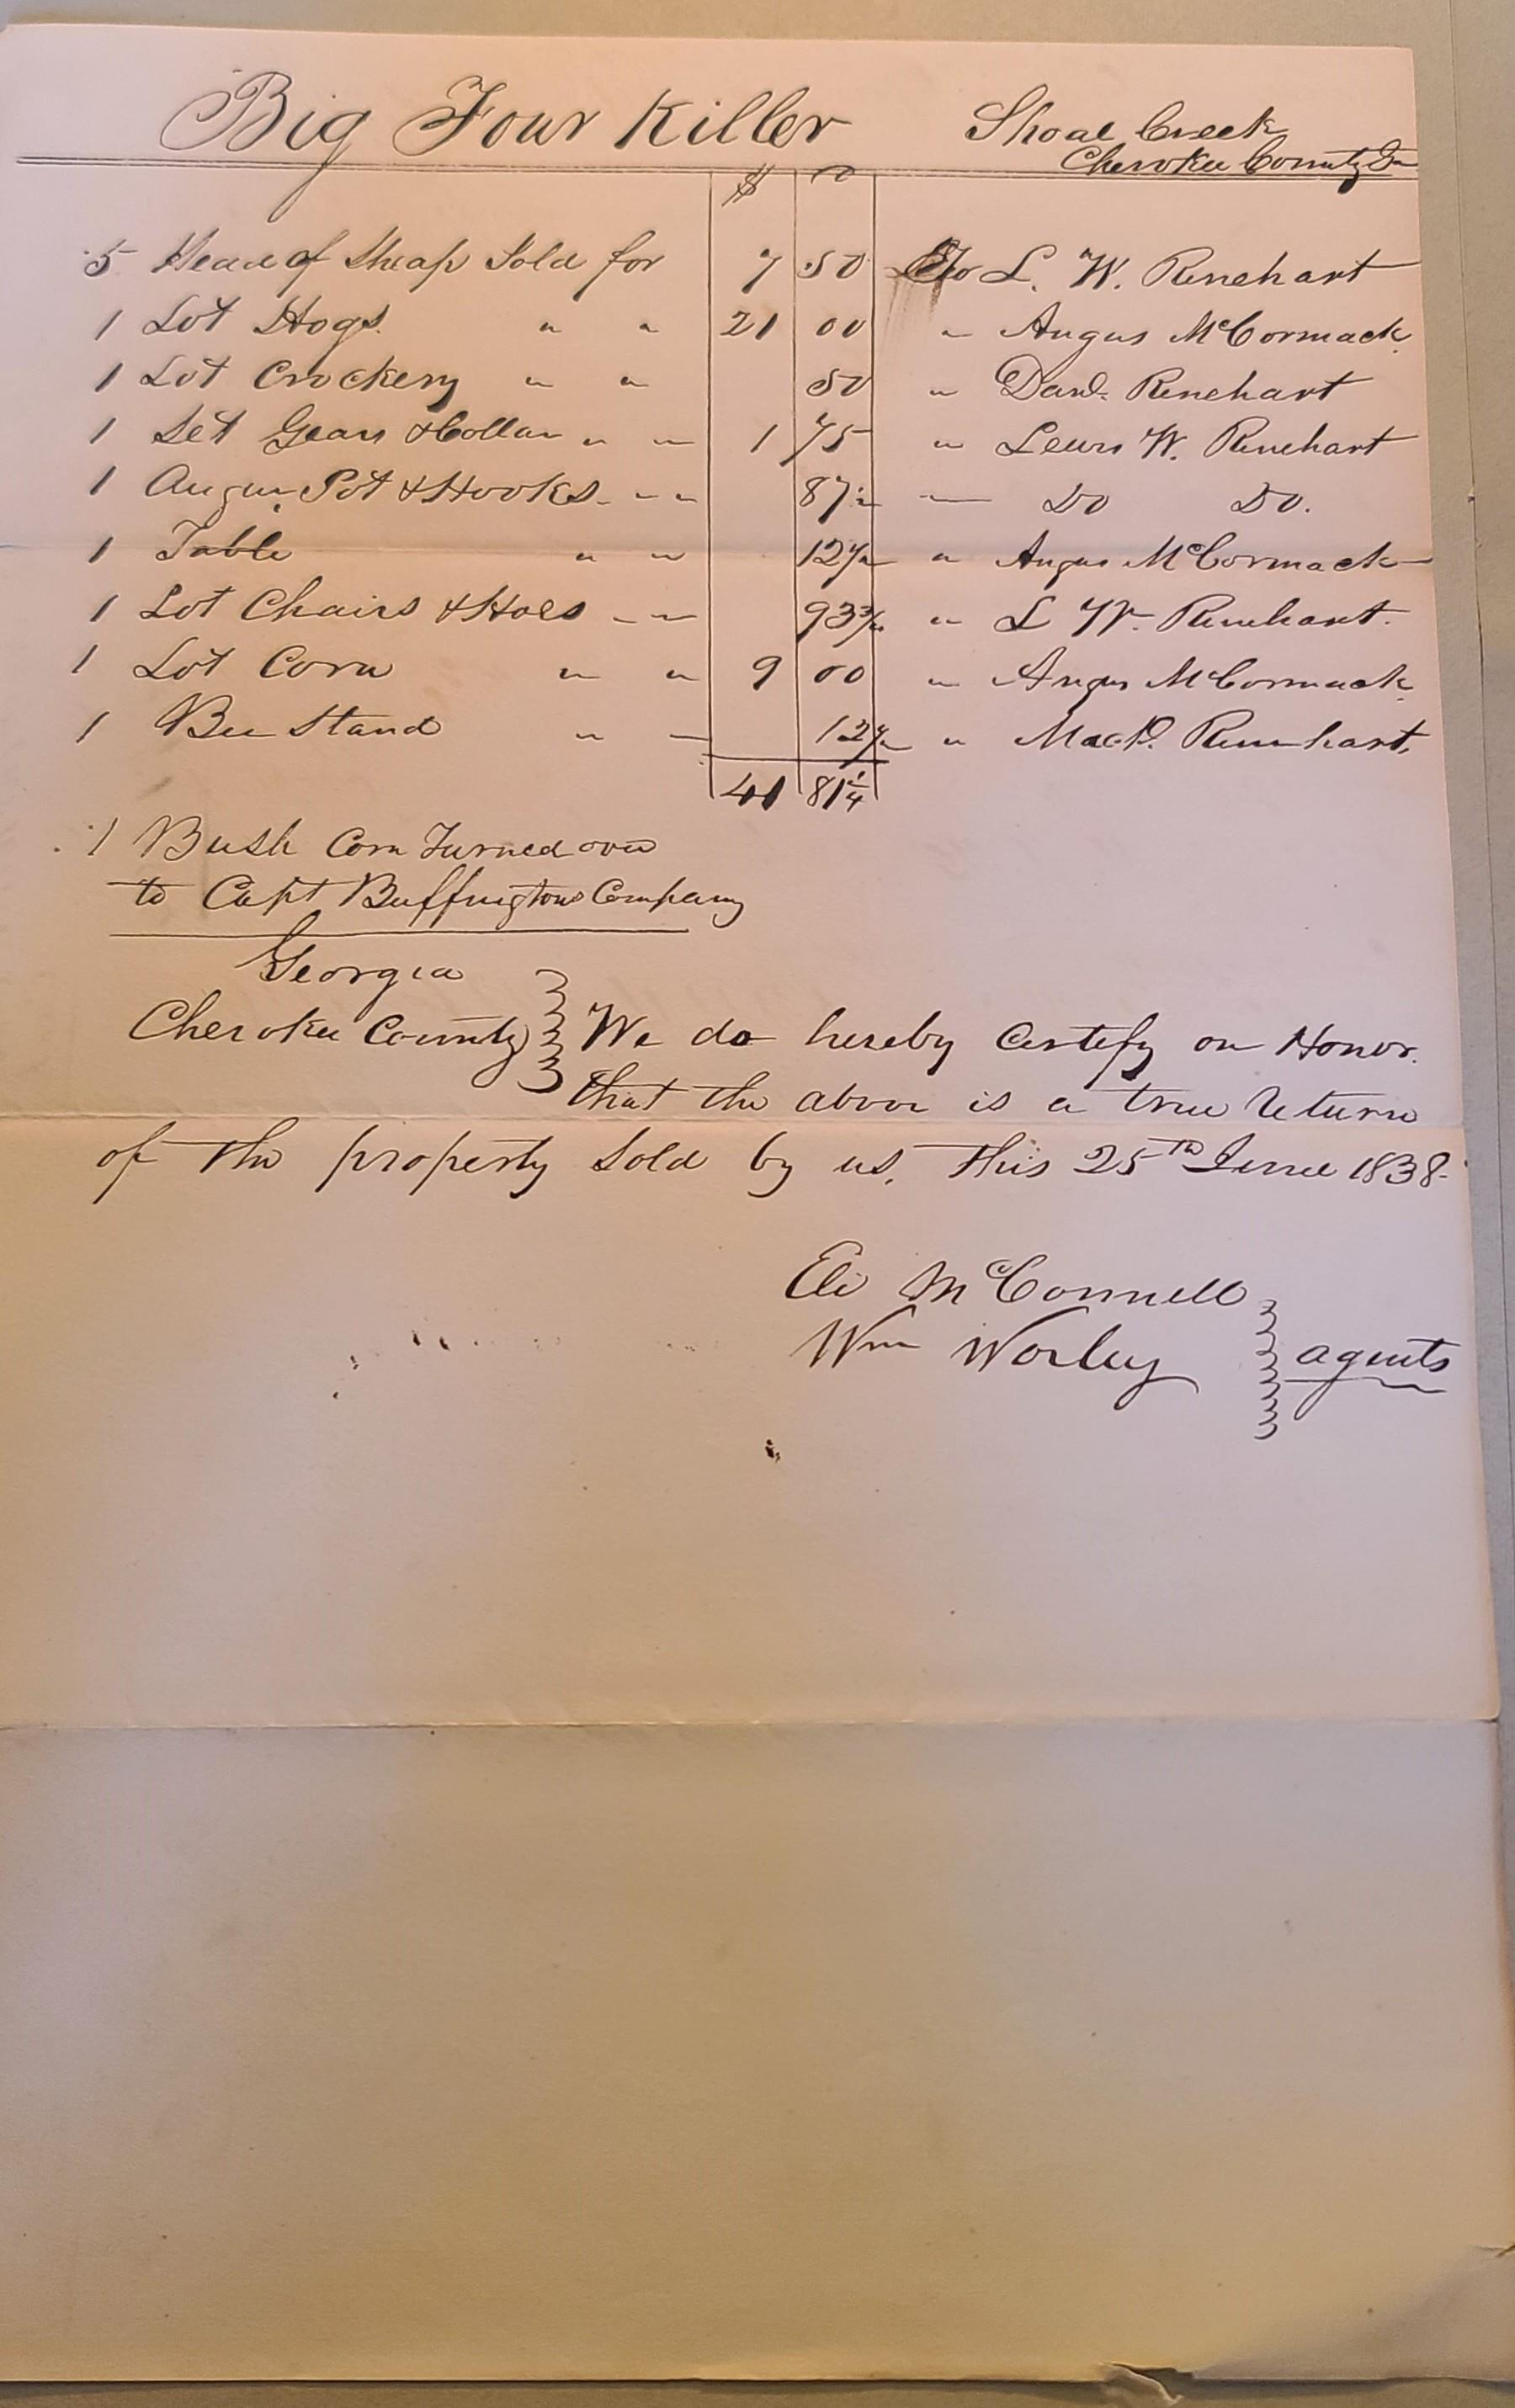 Big Four Killer Shoal Creek
Cherokee County Ga
$
5 Head of Sheap Sold for 7 50 To L. W. Rinehart
1 Lot Hogs " " 21 00 " Angus McCormack
1 Lot Crockery " " 50 " Danl. Rinehart
1 Set Gears & Collar " " 1 75 " Lewis W. Rinehart
1 Augur, Pot & Hooks " " 87 1/2 " Do Do.
1 Table " " 12 1/2 " Angus McCormack
1 Lot Chairs & Hoes " " 93 3/4 " L W. Rinehart.
1 Lot Corn " " 9 00 " Angus McCormack
1 Bee Stand " " 12 1/2 " Rinehart.
41 81 1/4
1 Bush Corn Turned over
to Capt Buffingtons Company
Georgia
Cherokee County We do hereby Certify on Honor.
that the above is a true Return
of the property Sold by us, this 25th June 1838.
Eli McConnell
Wm Worley agents